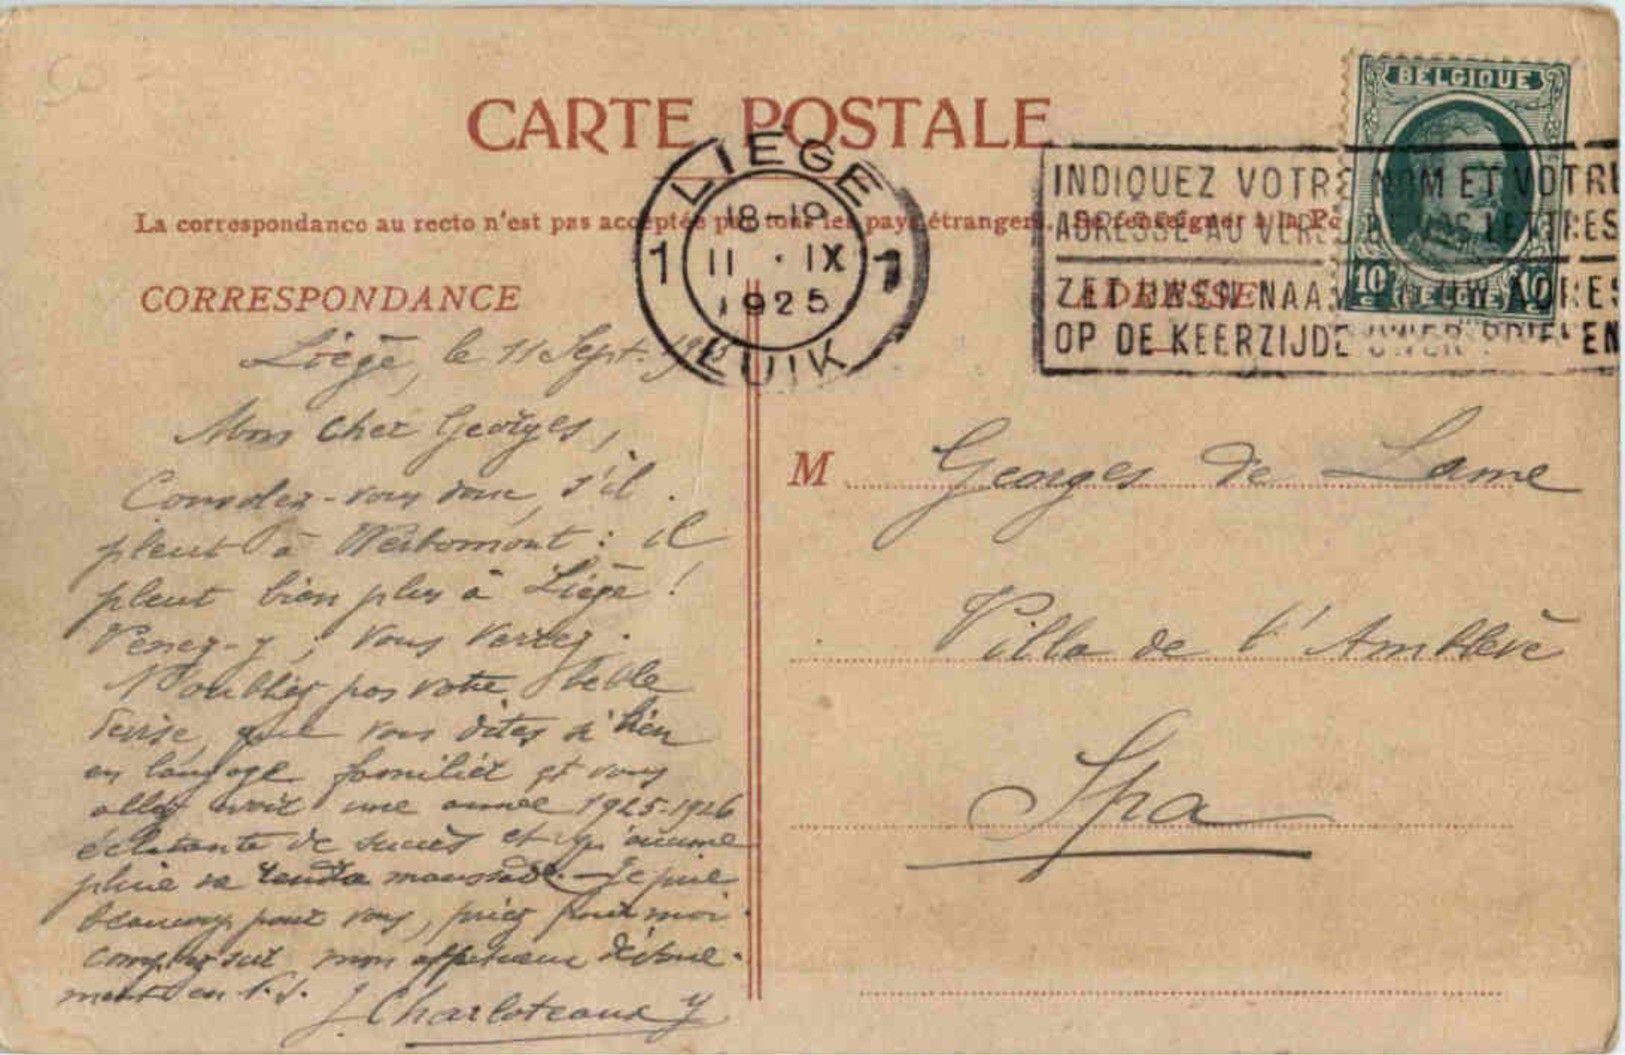 CARTE POSTALE
La correspondance au recto n'est pas acceptée par tous les pays étrangers. Se renseigner à la Po
CORRESPONDANCE
ADRESSE
LIÉGE
18-19
1 11 · IX 1
1925
LUIK
INDIQUEZ VOTRE NOM ET VOTRE
ADRESSE AU VERSO DE VOS LETTRES
ZET UWEN NAAM EN UW ADRES
OP DE KEERZIJDE UWER BRIEVEN
BELGIQUE
10 BELGIE 10
Liége, le 11 Sept. 1925
Mon Cher Georges,
Consolez-vous donc, s'il
pleut à Werbomont : il
pleut bien plus à Liége !
Venez-y ; vous verrez.
N'oubliez pas votre belle
devise, que vous dites si bien
en langage familier et vous
allez avoir une année 1925-1926
éclatante de succès et qu'aucune
pluie ne rendra maussade. Je prie
beaucoup pour vous, priez pour moi.
Comptez sur mon affectueux dévoue-
ment en N.S.
J. Charloteaux
M Georges de Lame
Villa de l'Amblève
Spa